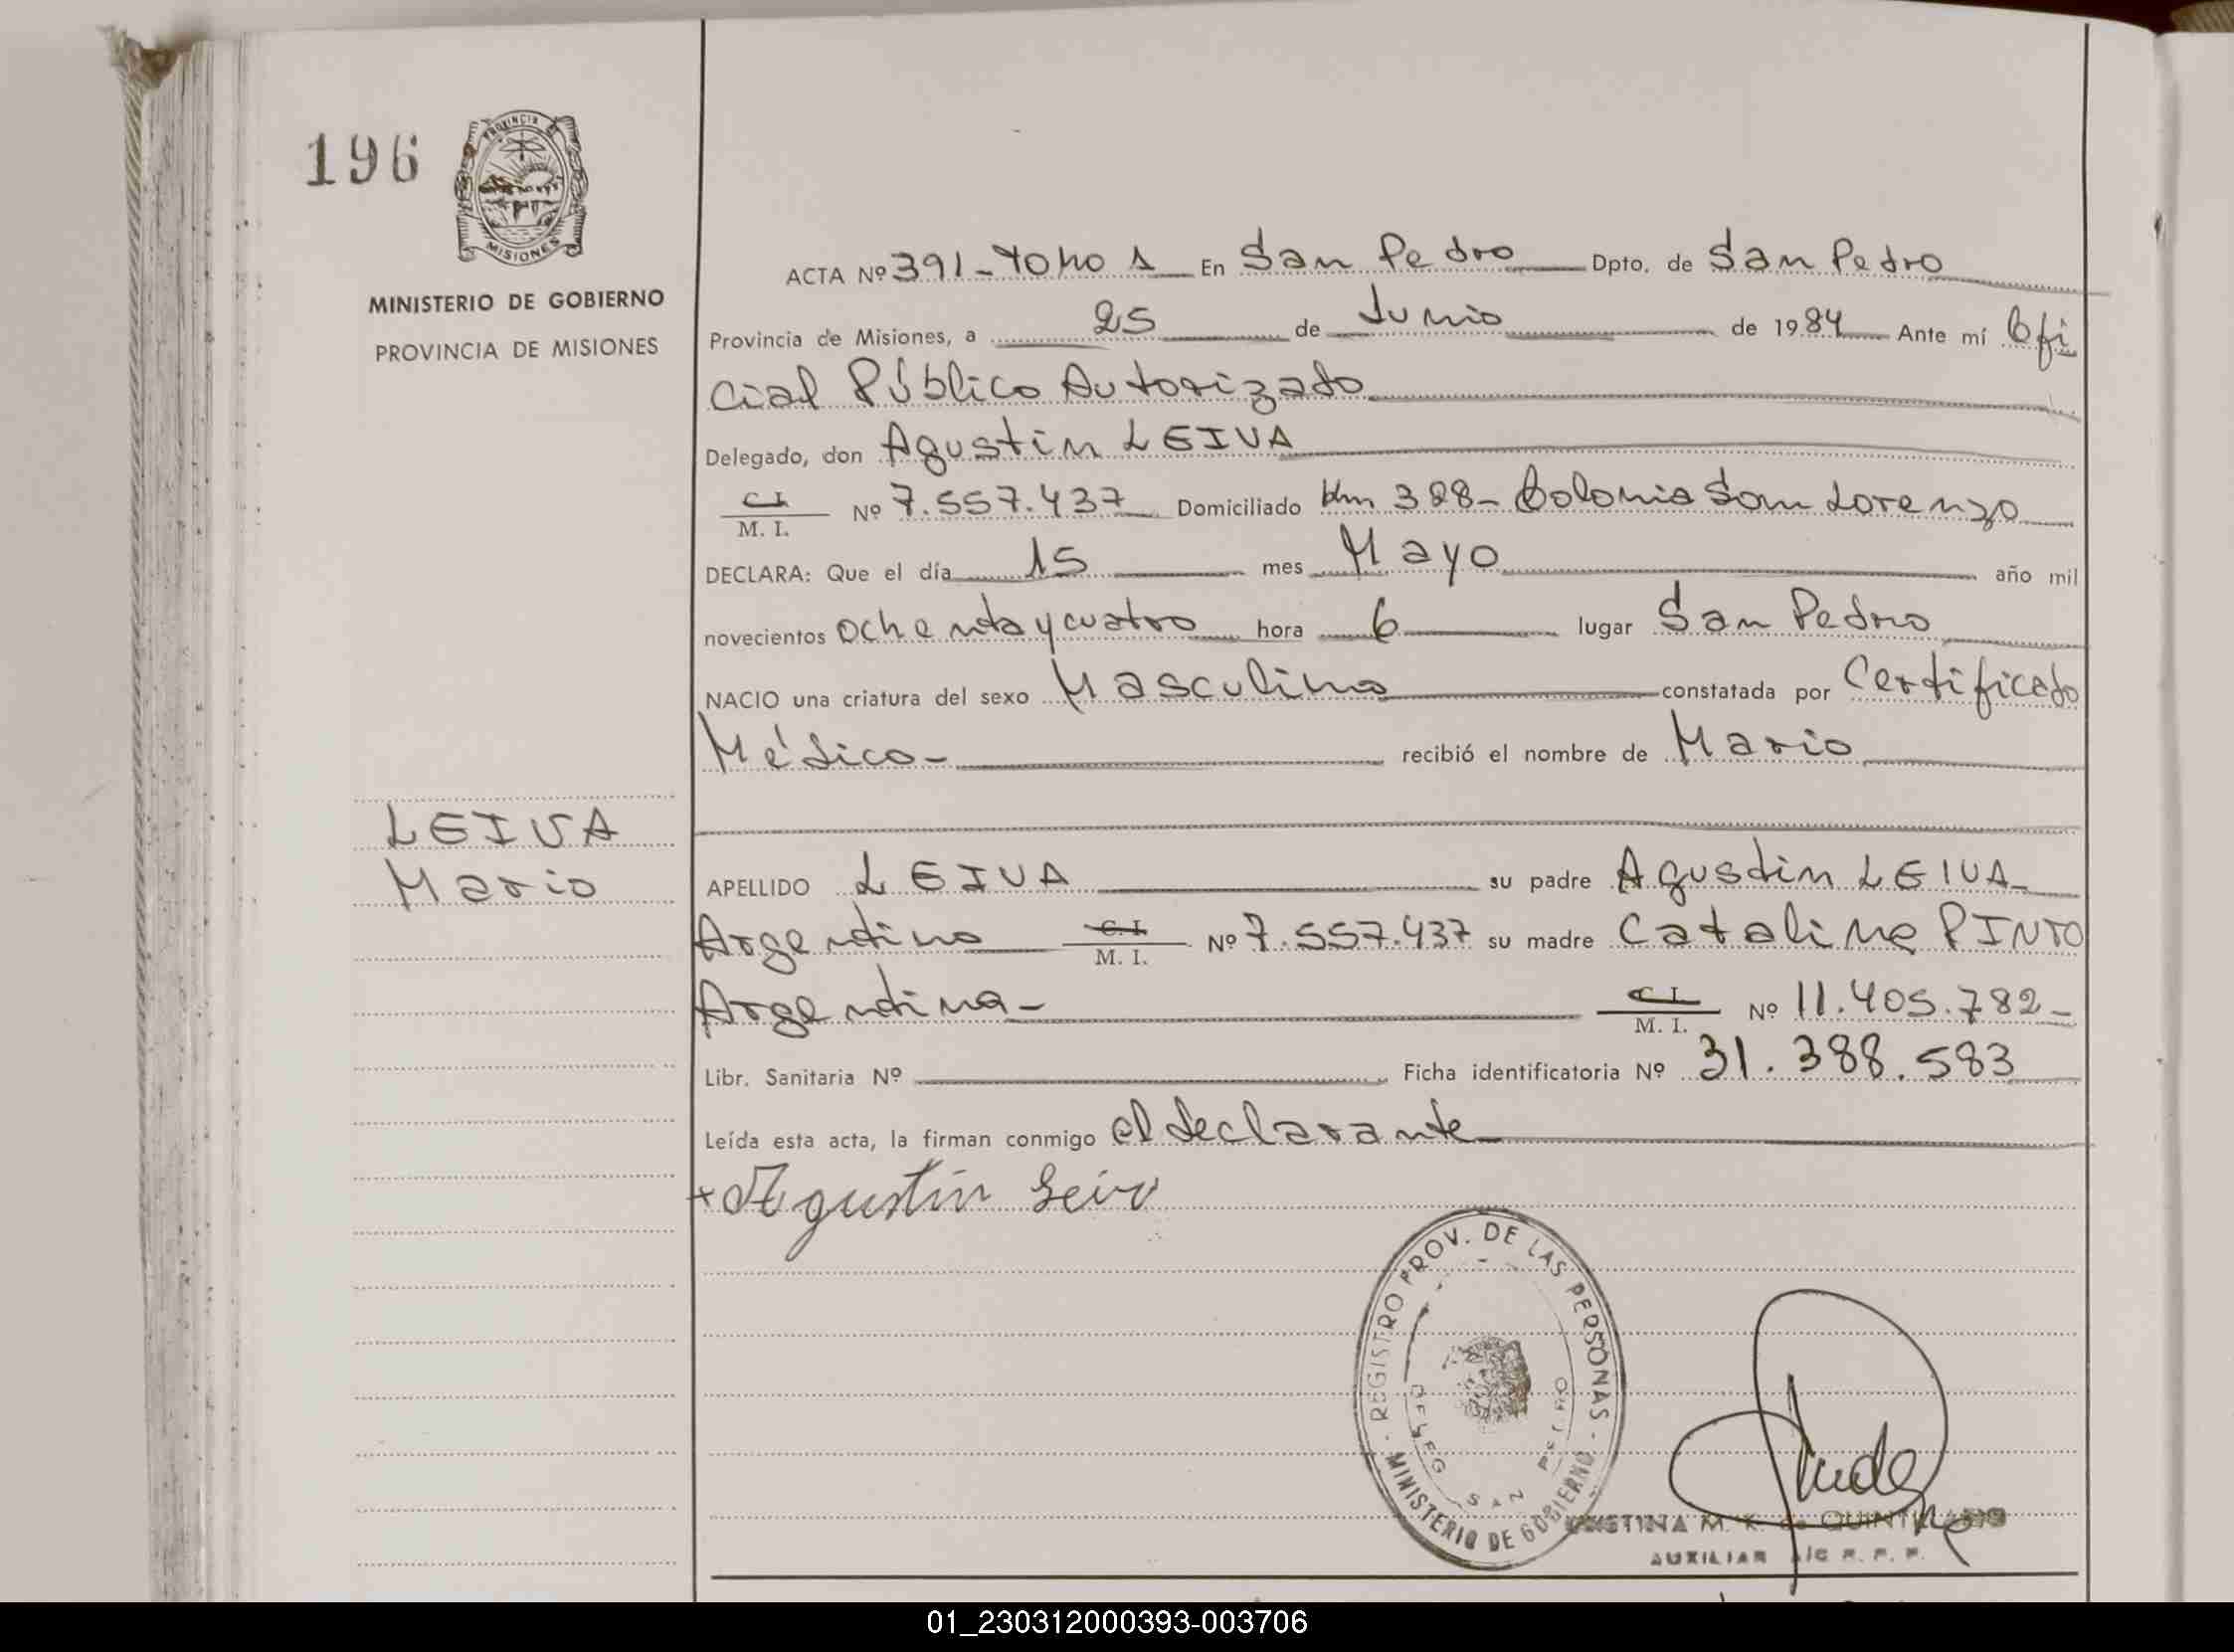 196
PROVINCIA DE
MISIONES
MINISTERIO DE GOBIERNO
PROVINCIA DE MISIONES
LEIVA
Mario
ACTA Nº 391-Tomo 1 En San Pedro Dpto. de San Pedro
Provincia de Misiones, a 25 de Junio de 1984 Ante mí Ofi
cial Público Autorizado
Delegado, don Agustin LEIVA
C.I. M. I. Nº 7.557.437 Domiciliado km 388- Colonia San Lorenzo
DECLARA: Que el día 15 mes Mayo año mil
novecientos ochenta y cuatro hora 6 lugar San Pedro
NACIO una criatura del sexo Masculino constatada por Certificado
Médico- recibió el nombre de Mario
APELLIDO LEIVA su padre Agustin LEIVA-
Argentino C. I. M. I. Nº 7.557.437 su madre Catalina PINTO
Argentina- C. I. M. I. Nº 11.405.782-
Libr. Sanitaria Nº Ficha identificatoria Nº 31.388.583
Leída esta acta, la firman conmigo el declarante
+ Agustin Leiva
REGISTRO PROV. DE LAS PERSONAS - MINISTERIO DE GOBIERNO -
DELEG SAN PEDRO
CRISTINA M. K. de
AUXILIAR A/C R. P. P.
01_230312000393-003706